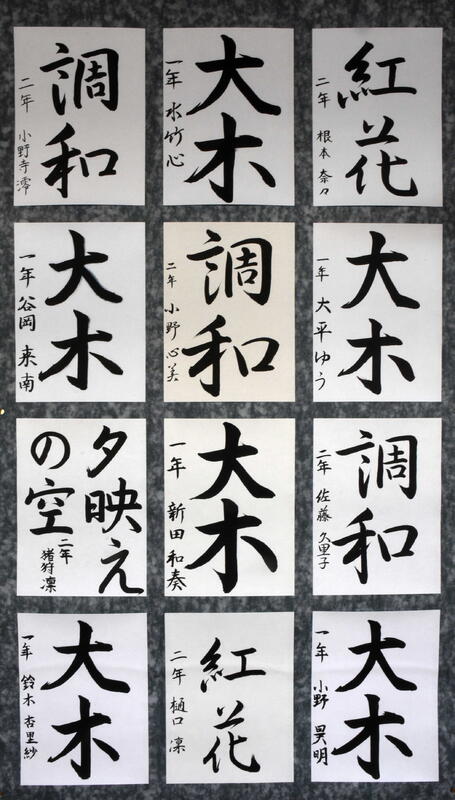 調和
二年 小野寺澪
大木
一年 水竹心
紅花
二年 根本奈々
大木
一年 谷岡来南
調和
二年 小野心美
大木
一年 大平ゆう
夕映え
の空
二年 猪狩凛
大木
一年 新田和奏
調和
二年 佐藤久里子
大木
一年 鈴木杏里紗
紅花
二年 樋口凛
大木
一年 小野昊明